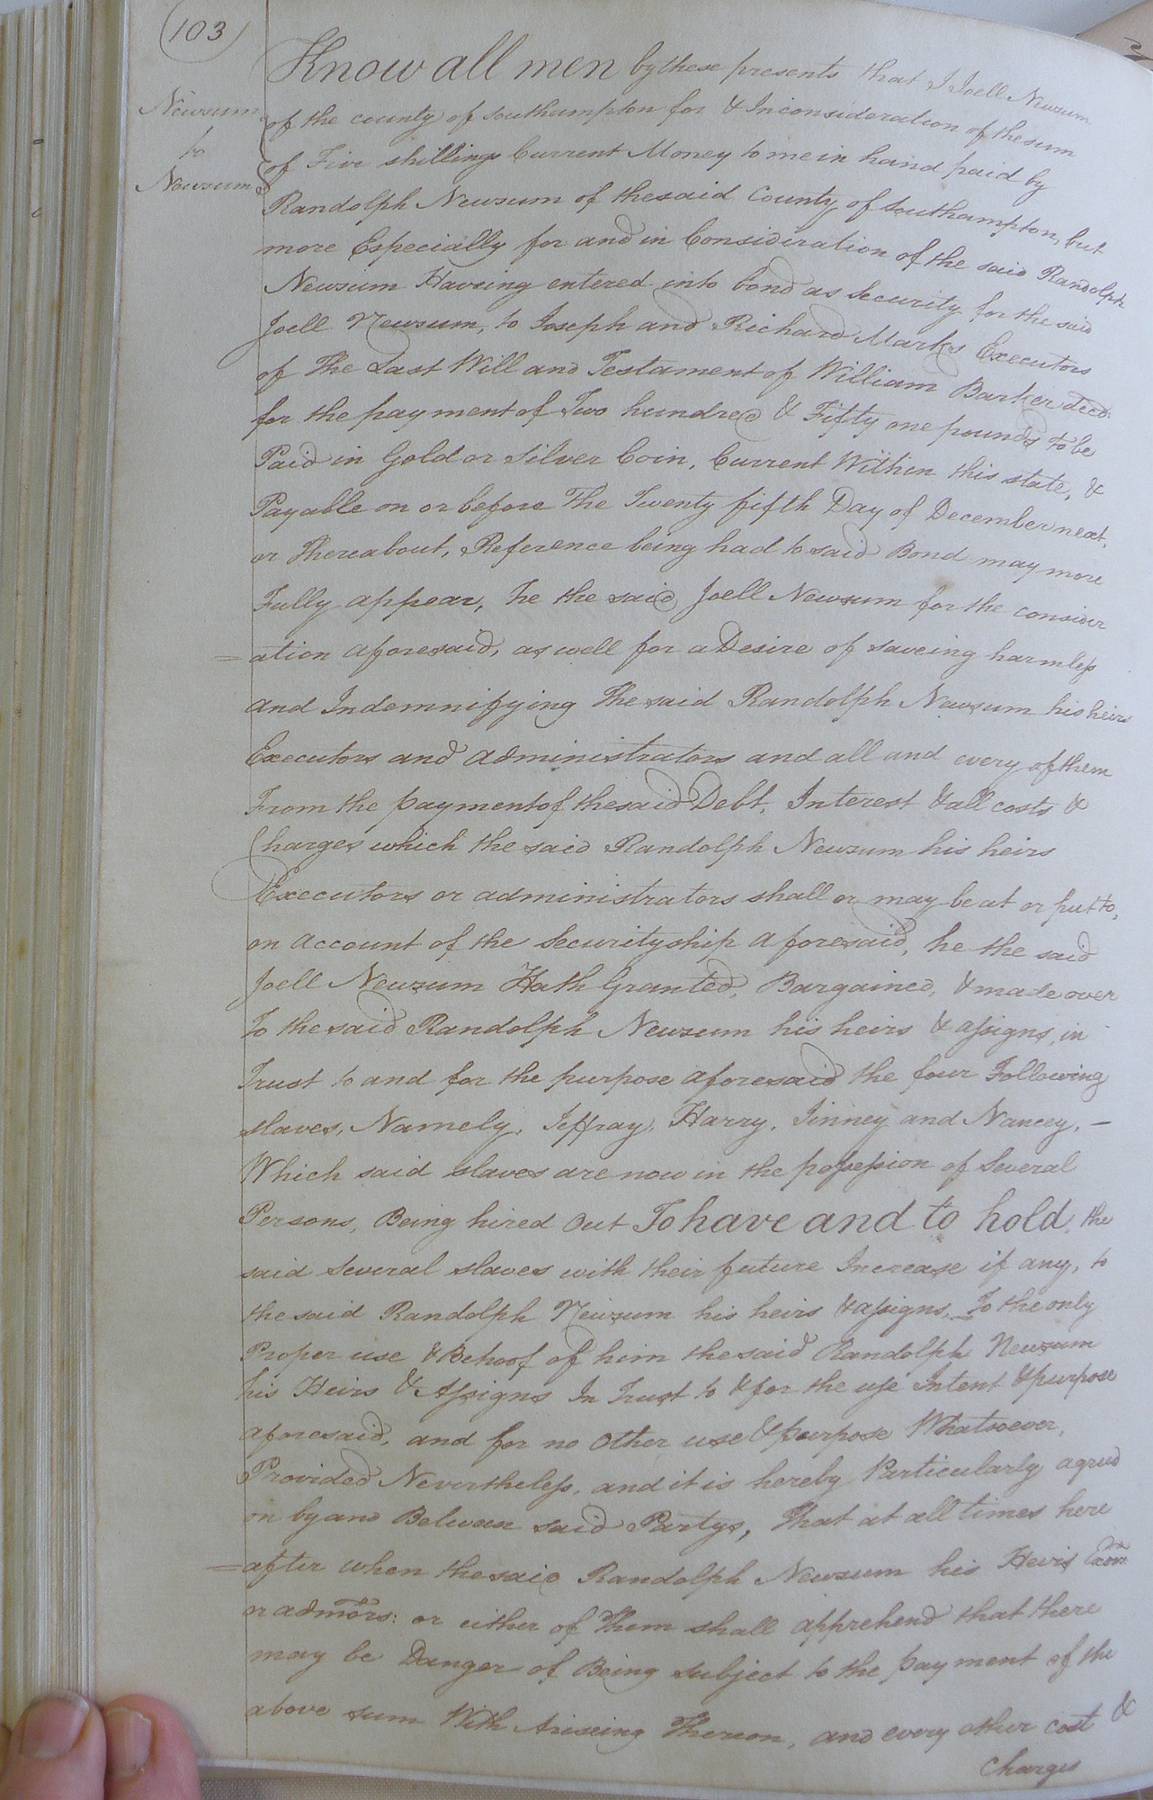 103
Newsum
to
Newsum
Know all men by these presents that I Joell Newsum
of the county of Southampton for & Inconsideration of the sum
of Five shillings Current Money to me in hand paid by
Randolph Newsum of the said County of Southampton, but
more Especially for and in Consideration of the said Randolph
Newsum Having entered into bond as Security for the said
Joell Newsum, to Joseph and Richard Marks Executors
of The Last Will and Testament of William Barker decd.
for the payment of Two hundred & Fifty one pounds to be
Paid in Gold or Silver Coin, Current Within this state, &
Payable on or before The Twenty fifth Day of December next,
or Thereabout, Reference being had to said Bond may more
Fully appear, he the said Joell Newsum for the consider
=ation aforesaid, as well for a Desire of saveing harmless
and Indemnifying The said Randolph Newsum his heirs
Executors and administrators and all and every of them
From the payment of the said Debt, Interest & all costs &
Charges which the said Randolph Newsum his heirs
Executors or administrators shall or may be at or put to,
on account of the Securityship aforesaid, he the said
Joell Newsum Hath Granted, Bargained, & made over
To the said Randolph Newsum his heirs & assigns, in
Trust to and for the purpose aforesaid the four Following
slaves, Namely, Jeffray, Harry, Jinney and Nancey, -
Which said slaves are now in the possession of Several
Persons, Being hired out To have and to hold, the
said Several slaves with their future Increase if any, to
the said Randolph Newsum his heirs & assigns, To the only
Proper use & Behoof of him the said Randolph Newsum
his Heirs & Assigns In Trust to & for the use Intent & purpose
aforesaid, and for no other use & purpose Whatsoever,
Provided Nevertheless, and it is hereby Particularly agreed
on by and Between said Partys, That at all times here
=after when the said Randolph Newsum his Heirs Exors
or admors: or either of Them shall apprehend that there
may be Danger of Being subject to the payment of the
above sum With Ariseing Thereon, and every other cost &
Charges